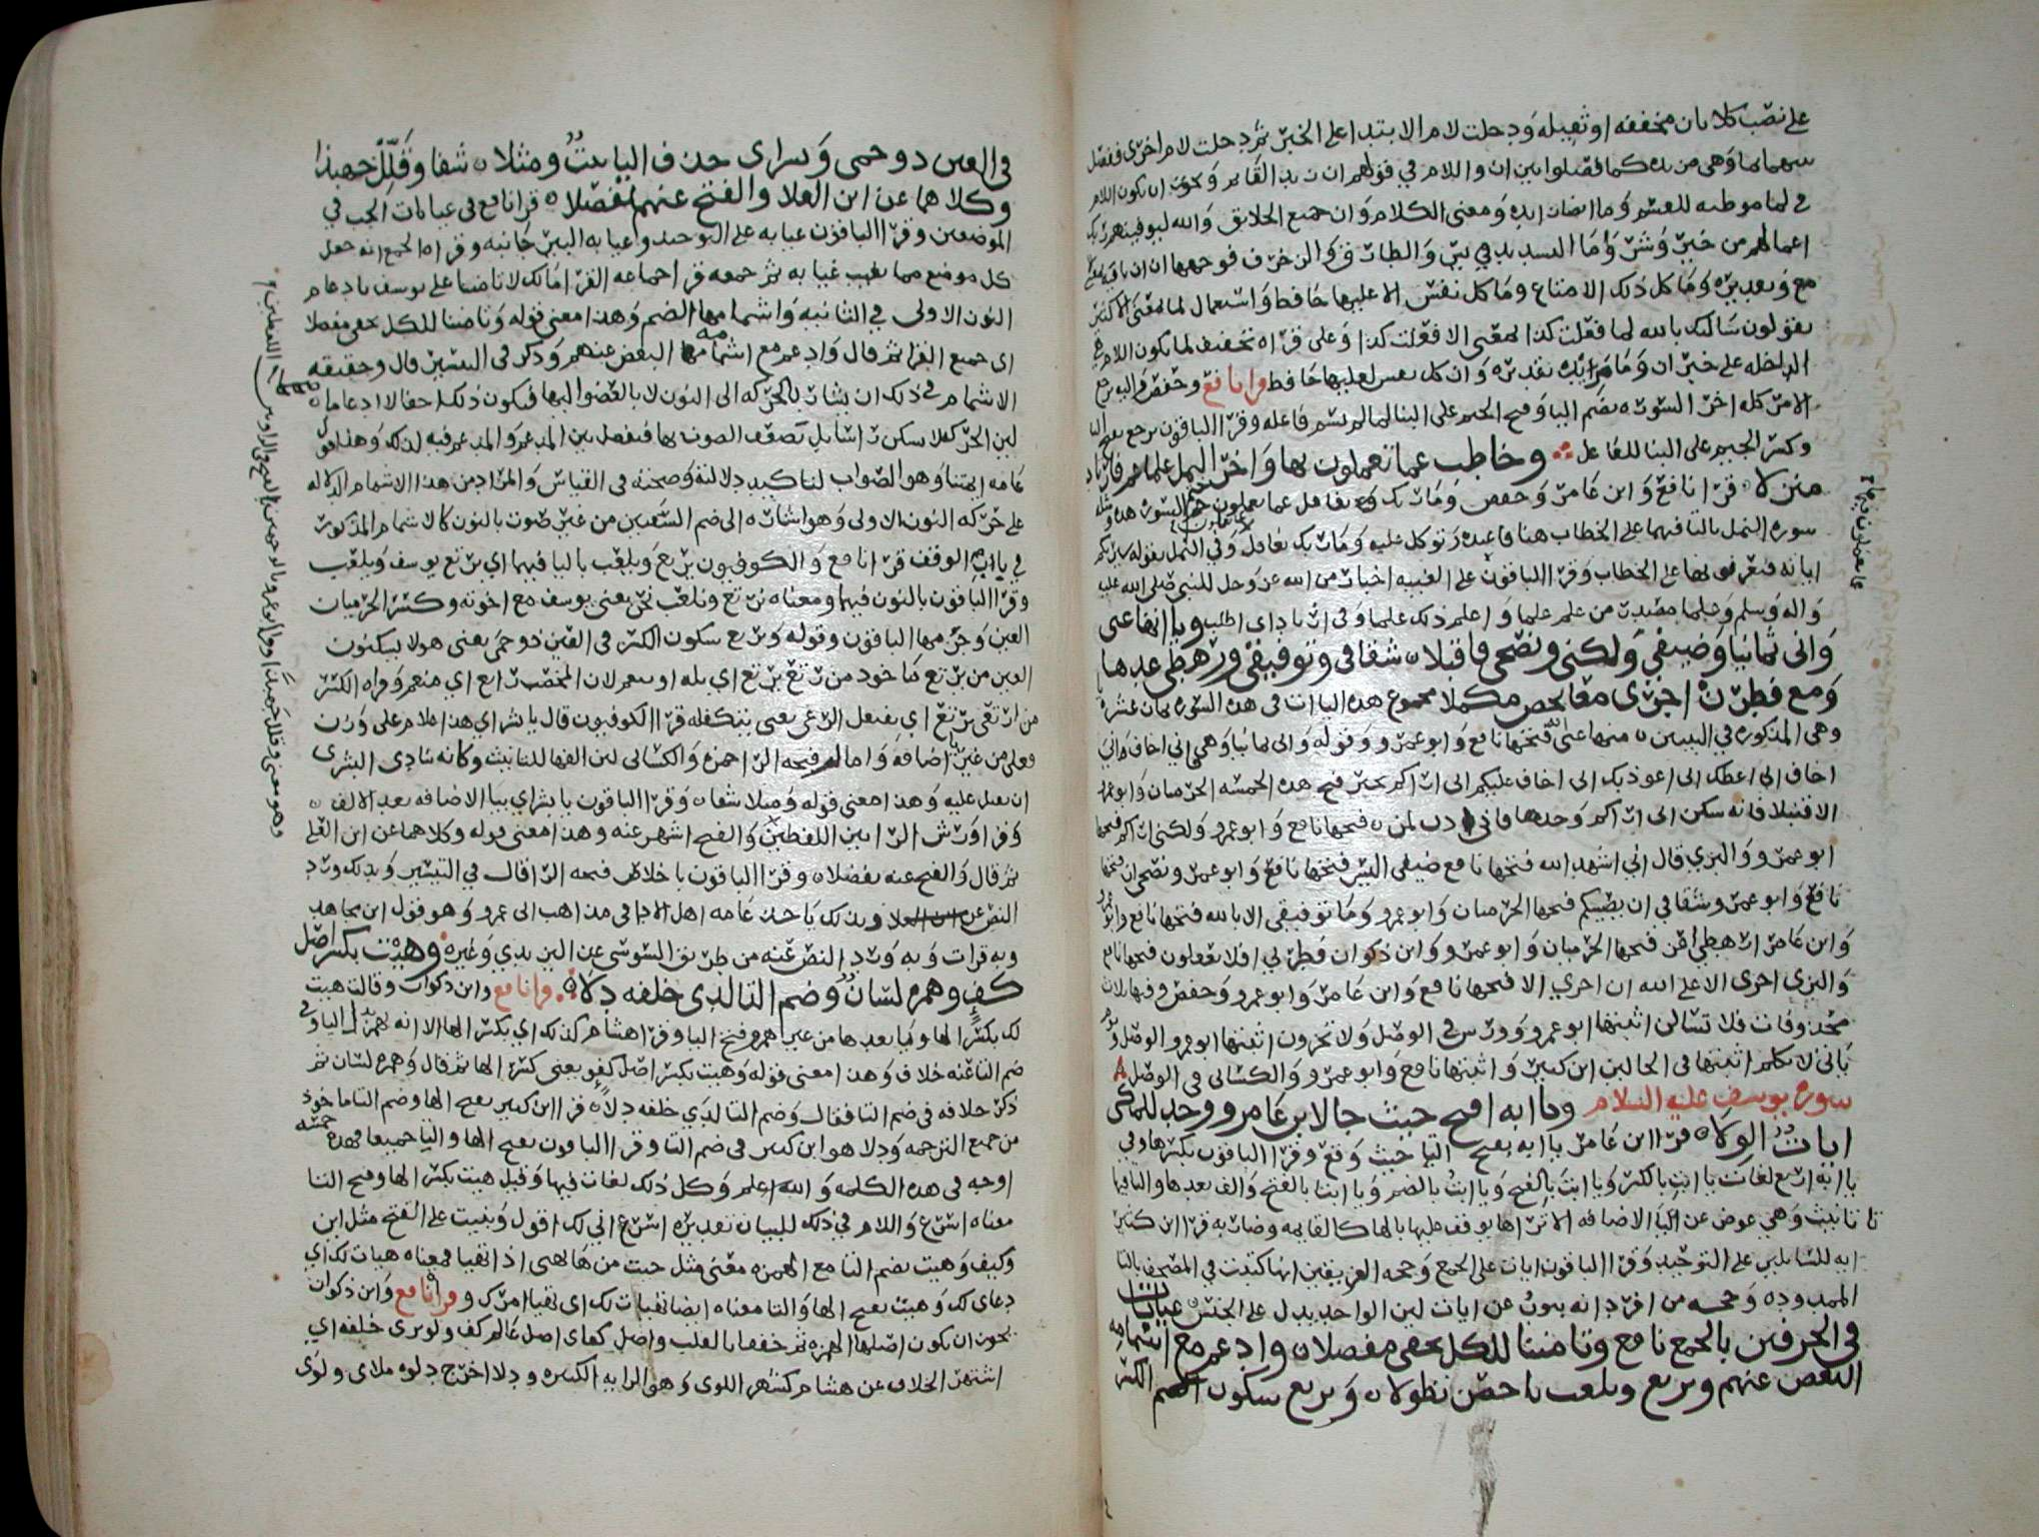 على نصب كلا بان مخففه او ثقيله ودخلت لام الابتدا على الخبر ثم دخلت لام اخرى ففصل
بينهما بما وهى من يده كما فصلوا بين ان واللام في قولهم ان زيد القايم ويجوز ان يكون اللام
في لما موطيه للقسم وما ايضا زايده ومعنى الكلام وان جميع الخلايق والله ليوفينهم ربك
اعمالهم من خير وشر واما التشديد في يس والطارق والزخرف فوجهها ان ان نافيه
مع وتقديره وما كل ذلك الا متاع وما كل نفس الا عليها حافظ واستعمال لما بمعنى الا كثير
يقولون سالتك بالله لما فعلت كذا بمعنى الا فعلت كذا وعلى قراه تخفيف لما يكون اللام هي
الداخله على خبر ان وما زايده تقديره وان كل نفس لعليها حافظ وانافع وحفص واليه يرجع
الامر كله اخر السوره بضم اليا وفتح الجيم على البنا لما لم يسم فاعله وقرا الباقون يرجع بفتح اليا
وكسر الجيم على البنا للفاعل وخاطب عما تعملون بها واخر النمل علما عم وارتاد
منزلا قرا نافع وابن عامر وحفص وما ربك بغافل عما يعملون اخر السوره هذه ومثله
سوره النمل بالتا فيهما على الخطاب هنا فاعبده وتوكل عليه وما ربك بغافل وفي النمل بقوله سيريكم
اياته فتعرفونها على الخطاب وقرا الباقون على الغيبه اخبارا من الله عز وجل للنبي صلى الله عليه
واله وسلم وعلما مصدر من علم علما واعلم ذلك علما وفي ارتاد اى اطلب وياانها عنى
وانى ثمانيا وضيفى ولكنى ونصحى فاقبلا شقاقى وتوفيقى ورهطى عدها
ومع فطرن اجرى معا تحص مكملا مجموع هذه الياات فى هذه السوره ثمان عشره
وهى المذكوره في البيتين منها عنى انه فتحها نافع وابو عمرو وقوله وانى ثمانيا وهي اني اخاف واني
اخاف انى اعظك انى اعوذ بك انى اخاف عليكم انى اراكم بخير فتح هذه الخمسه الحرميان وابو عمرو
الا قنبلا فانه سكن انى اراكم وحدها فانى اذن لمن فتحها نافع وابو عمرو ولكنى اراكم فتحها
ابو عمرو والبزي قال اني اشهد الله فتحها نافع ضيفى اليس فتحها نافع وابو عمرو ونصحى ان فتحها
نافع وابو عمرو وشقاقي ان يصيبكم فتحها الحرميان وابو عمرو وما توفيقى الا بالله فتحها نافع وابو عمرو
وابن عامر ارهطي اعز فتحها الحرميان وابو عمرو وابن ذكوان فطرني افلا تعقلون فتحها نافع
والبزي اجرى الا على الله ان اجري الا فتحها نافع وابن عامر وابو عمرو وحفص وفيها ثلاث
محذوفات فلا تسالن اثبتها ابو عمرو وورش في الوصل ولا تخزون اثبتها ابو عمرو الوصل ويوم
ياتى لا تكلم اثبتها فى الحالين ابن كثير واثبتها نافع وابو عمرو والكسائى فى الوصل
سوره يوسف عليه السلام ويا ابه افتح حيث جا لابن عامر ووحد للمكى
ايات الولا قرا ابن عامر يا ابه بفتح التا حيث وقع وقرا الباقون بكسرها وفي
يا ابه اربع لغات يا ابت بالكسر ويا ابت بالفتح ويا ابت بالضم ويا ابتا بالفتح والف بعدها والتا فيها
تا تانيث وهي عوض عن اليا الاضافه الا تراها يوقف عليها بالها كالقايمه وضاربه قرا ابن كثير
ايه للسايلين على التوحيد وقرا الباقون ايات على الجمع وحجه الفريقين انها كتبت في المصحف بالتا
الممدوده وحجه من افرد انه ينوب عن ايات لان الواحد يدل على الجنس غيابات
فى الحرفين بالجمع نافع وتامننا للكل يخفى مفصلا وادغم مع اشمامه
البعض عنهم ونرتع ونلعب يا حصن تطولا ويرتع سكون الكسر
ما يعملون نافع
فى العين ذو حمى وبشراى حذف اليا ثبت ومثلا شفا وقلل جهبذا
وكلاهما عن ابن العلا والفتح عنهم تفضلا قرا نافع فى غيابات الجب في
الموضعين وقرا الباقون غيابه على التوحيد وغيابه البير جانبه وقراه الجمع انه جعل
كل موضع مما يغيب غيابه ثم جمعه قرا جماعه القرا مالك لا تامنا على يوسف بادغام
النون الاولى في الثانيه واشمامها الضم وهذا معنى قوله وتامننا للكل يخفى مفصلا
اى جميع القرا ثم قال وادغم مع اشمامه البعض عنهم وذكر فى التيسير قال وحقيقه
الاشمام في ذلك ان يشار بالحركه الى النون لا بالعضو اليها فيكون ذلك اخفا لا ادغاما
لان الحركه لا تسكن راسا بل تضعف الصوت بها فيفصل بين المدغم والمدغم فيه لذلك وهذا قول
عامه ايمتنا وهو الصواب لتاكيد دلالته وصحته فى القياس والمراد من هذا الاشمام الدلاله
على حركه النون الاولى وهو اشاره الى ضم الشفتين من غير صوت بالنون كالاشمام المذكور
في باب الوقف قرا نافع والكوفيون يرتع ويلعب باليا فيهما اي يرتع يوسف ويلعب
وقرا الباقون بالنون فيهما ومعناه نرتع ونلعب نحن يعنى يوسف مع اخوته وكسر الحرميان
العين وجزمها الباقون وقوله ويرتع سكون الكسر فى العين ذو حمى يعنى هولا يسكنون
العين من يرتع ماخوذ من رتع يرتع اي يله او ينعم لان المخصب راتع اي منعم وقراه الكسر
من ارتعى يرتعى اي يفتعل الرعى يعنى يتكفله قرا الكوفيون قال يا بشراي هذا غلام على وزن
فعلى من غير اضافه وامال فتحه الرا حمزه والكسائى لان الفها للتانيث وكانه نادى البشرى
ان تقبل عليه وهذا معنى قوله وميلا شفا وقرا الباقون يا بشراي بيا الاضافه بعد الالف
وقرا ورش الرا بين اللفظين والفتح اشهر عنه وهذا معنى قوله وكلاهما عن ابن العلى
ثم قال والفتح عنه تفضلا وقرا الباقون باخلاص فتحه الرا قال في التيسير وبذلك ورد
النص عن ابن العلا وبذلك ياخذ عامه اهل الادا فى مذاهب ابى عمرو وهو قول ابن مجاهد
وبه قرات وبه ورد النص عنه من طريق السوسى عن اليزيدي وغيره وهيت بكسر اصل
كفو وهمزه لسان وضم التا لذى خلفه دلا قرا نافع وابن ذكوان وقالت هيت
لك بكسر الها ويا بعدها من غير همز وفتح التا وقرا هشام كذلك اي بكسر الها الا انه همز اليا وفي
ضم التا عنه خلاف وهذا معنى قوله وهيت بكسر اصل كفو يعنى كسر الها ثم قال وهمزه لسان ثم
ذكر خلافه فى ضم التا فقال وضم التا لذي خلفه دلا قرا ابن كثير بفتح الها وضم التا ماخوذ
من جميع الترجمه ودلا هو ابن كثير فى ضم التا وقرا الباقون بفتح الها والتا جميعا فهذه خمسه
اوجه فى هذه الكلمه والله اعلم وكل ذلك لغات فيها وقيل هيت بكسر الها وفتح التا
معناه اسرع واللام في ذلك للبيان تقديره اسرع اني لك اقول وبنيت على الفتح مثل اين
وكيف وهيت بضم التا مع الهمزه معنى مثل جيت من هايهى اذا تهيا فمعناه هيات لك اي
دعاى لك وهيت بفتح الها والتا معناه ايضا تهيات لك اى تهيا امرك وقرا نافع وابن ذكوان
يجوز ان يكون اصلها الهمزه ثم خففها بالقلب واصل كفو اى اصل عالم كفو ولو يرى خلفه اي
اشتهر الخلاف عن هشام كشهر اللوى وهو الرايه الكبيره ودلا اخرج دلوه ملاى ولوى